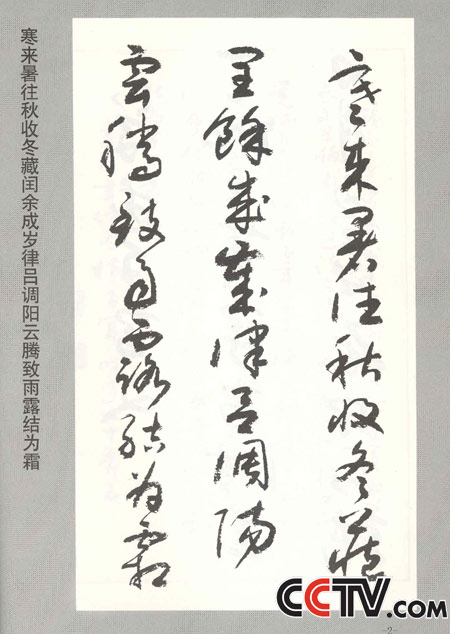 寒来暑往秋收冬藏
闰餘成歲律吕调阳
雲腾致雨露结为霜
寒来暑往秋收冬藏闰余成岁律吕调阳云腾致雨露结为霜
CCTV.com
-2-